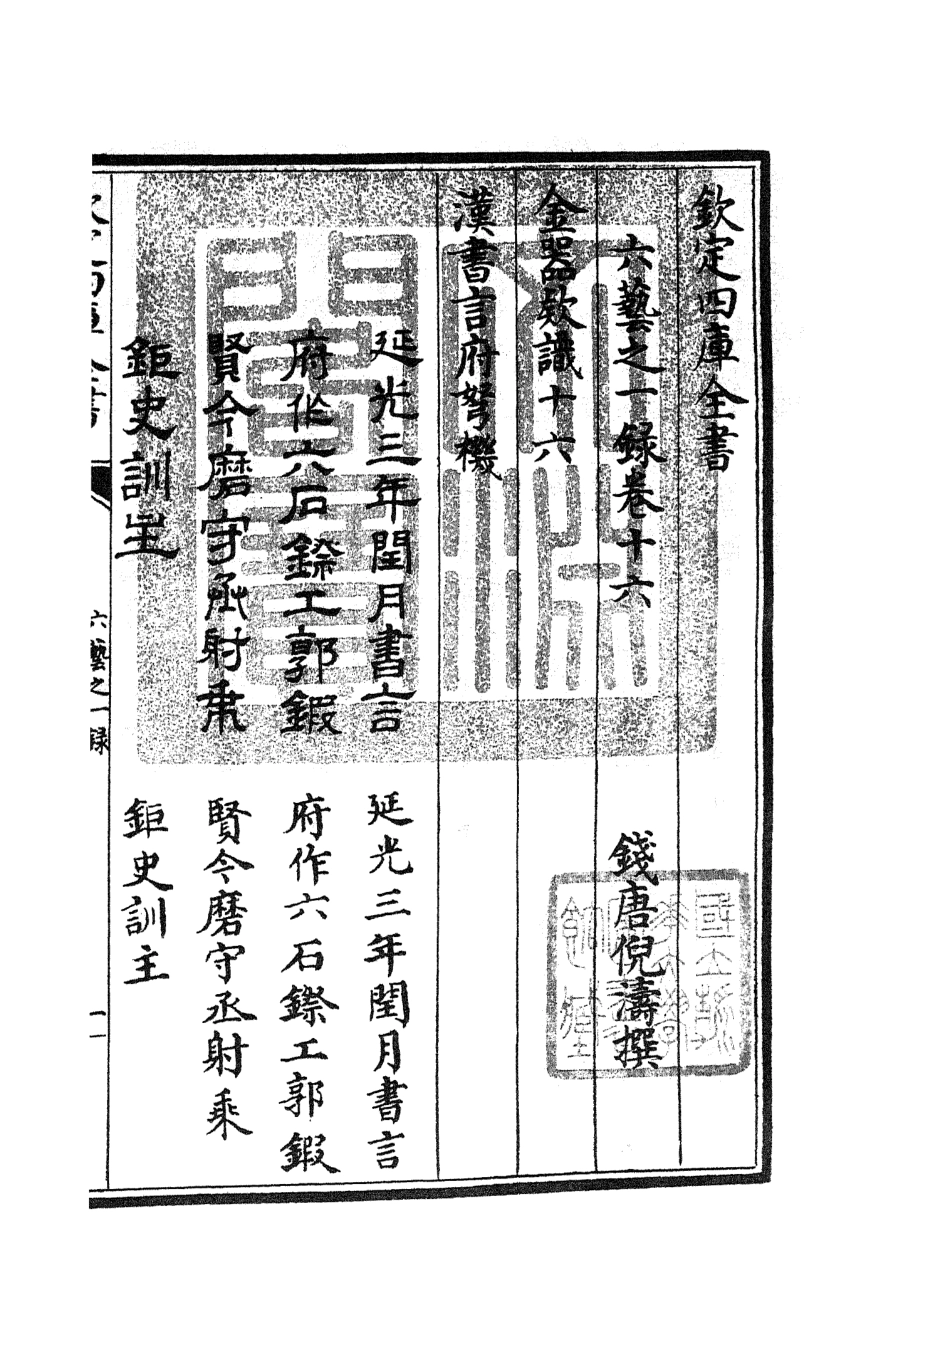 欽定四庫全書
六藝之一錄卷十六
錢唐倪濤撰
金器欵識十六
漢書言府弩機
延光三年閏月書言
府作六石鑗工郭鍜
賢令磨守丞射乘
鉅史訓主
延光三年閏月書言
府作六石鑗工郭鍜
賢令磨守丞射乘
鉅史訓主
六藝之一錄
一